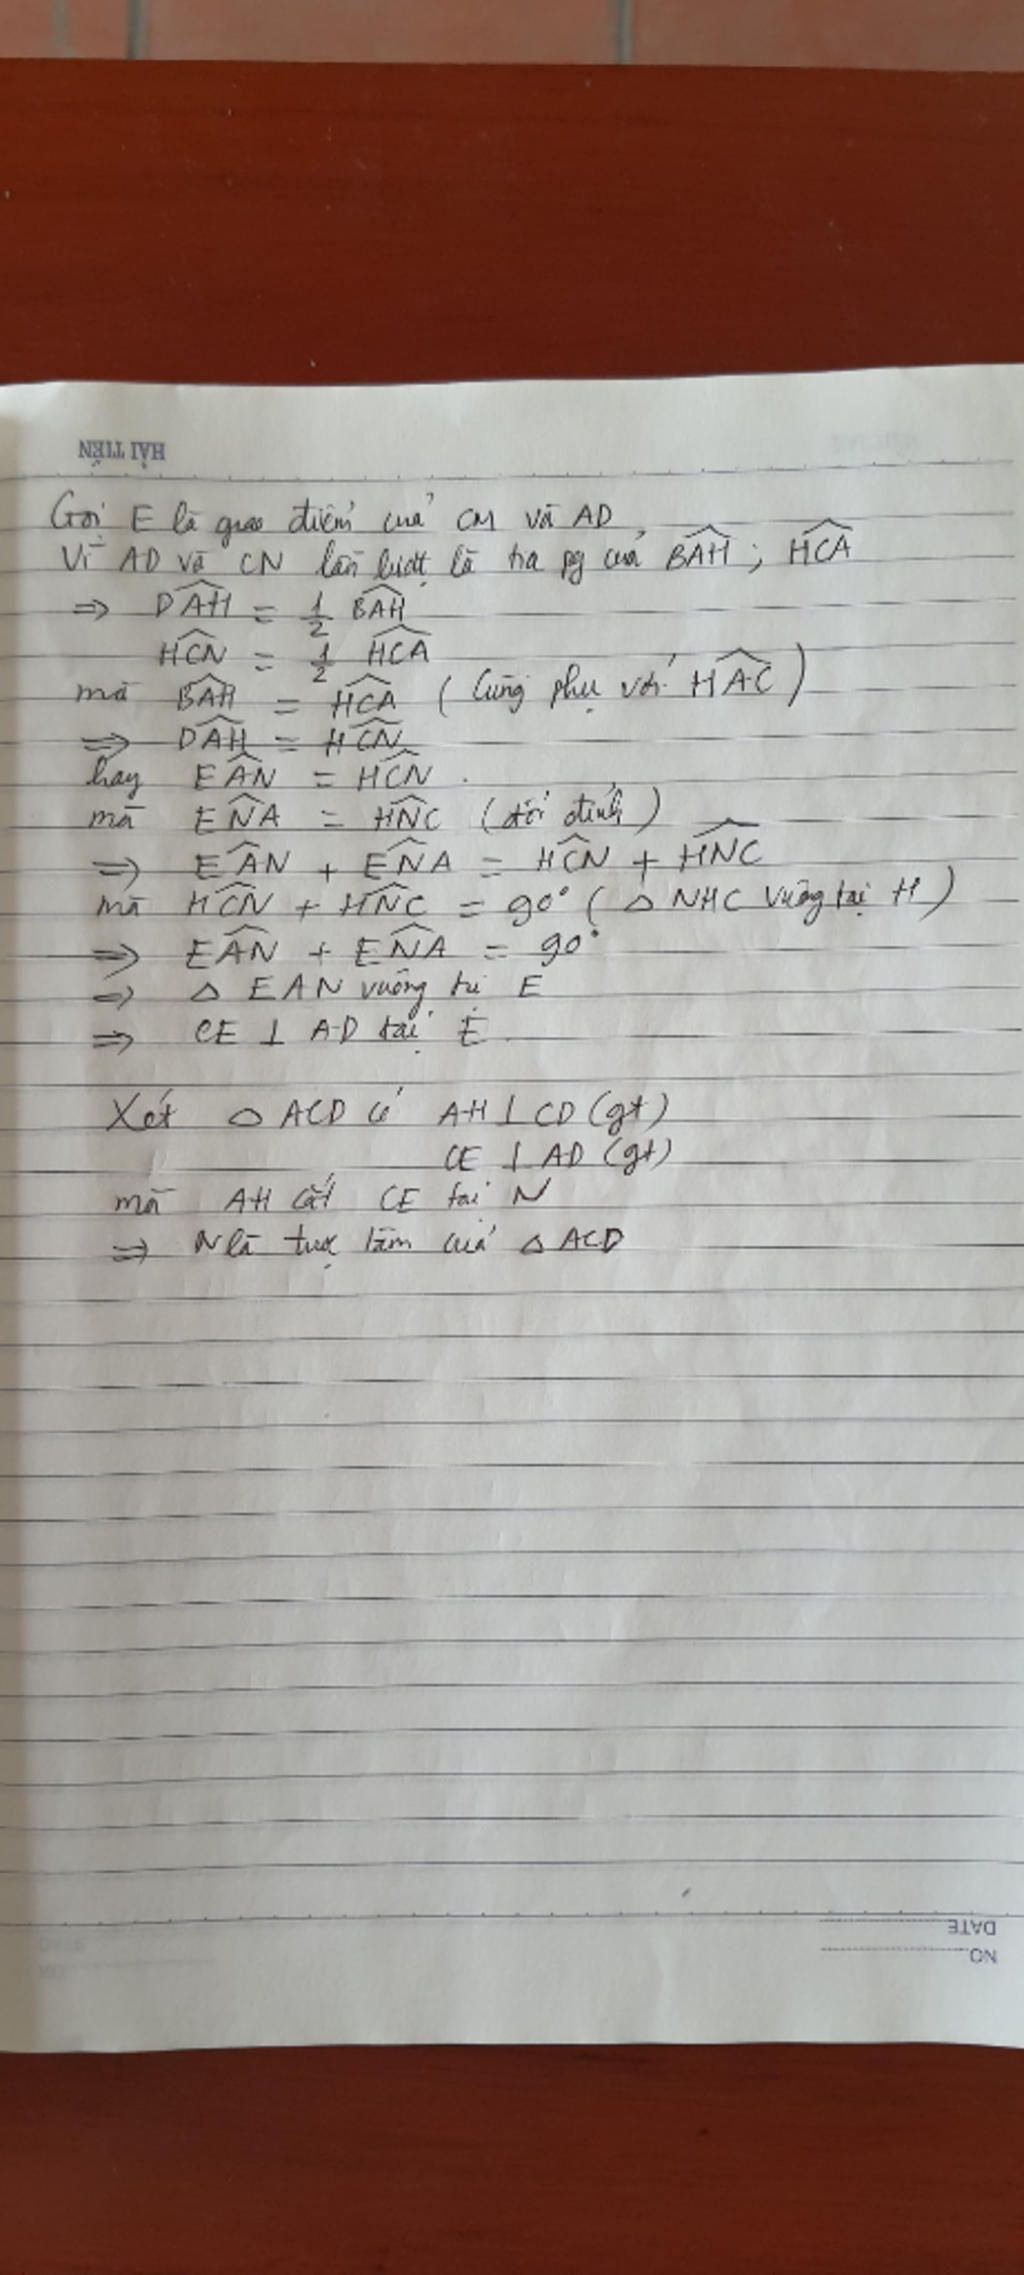 HẢI TIẾN
Gọi E là giao điểm của CM và AD
Vì AD và CN lần lượt là tia pg của \widehat{BAH} ; \widehat{HCA}
=> \widehat{DAH} = \frac{1}{2} \widehat{BAH}
\widehat{HCN} = \frac{1}{2} \widehat{HCA}
mà \widehat{BAH} = \widehat{HCA} ( Cùng phụ với \widehat{HAC} )
=> \widehat{DAH} = \widehat{HCN}
hay \widehat{EAN} = \widehat{HCN} .
mà \widehat{ENA} = \widehat{HNC} (đối đỉnh)
=> \widehat{EAN} + \widehat{ENA} = \widehat{HCN} + \widehat{HNC}
mà \widehat{HCN} + \widehat{HNC} = 90° ( △ NHC vuông tại H )
=> \widehat{EAN} + \widehat{ENA} = 90°
=> △ EAN vuông tại E
=> CE ⊥ AD tại E .
Xét △ ACD có AH ⊥ CD (gt)
CE ⊥ AD (gt)
mà AH cắt CE tại N
=> N là trực tâm của △ ACD
DATE
NO